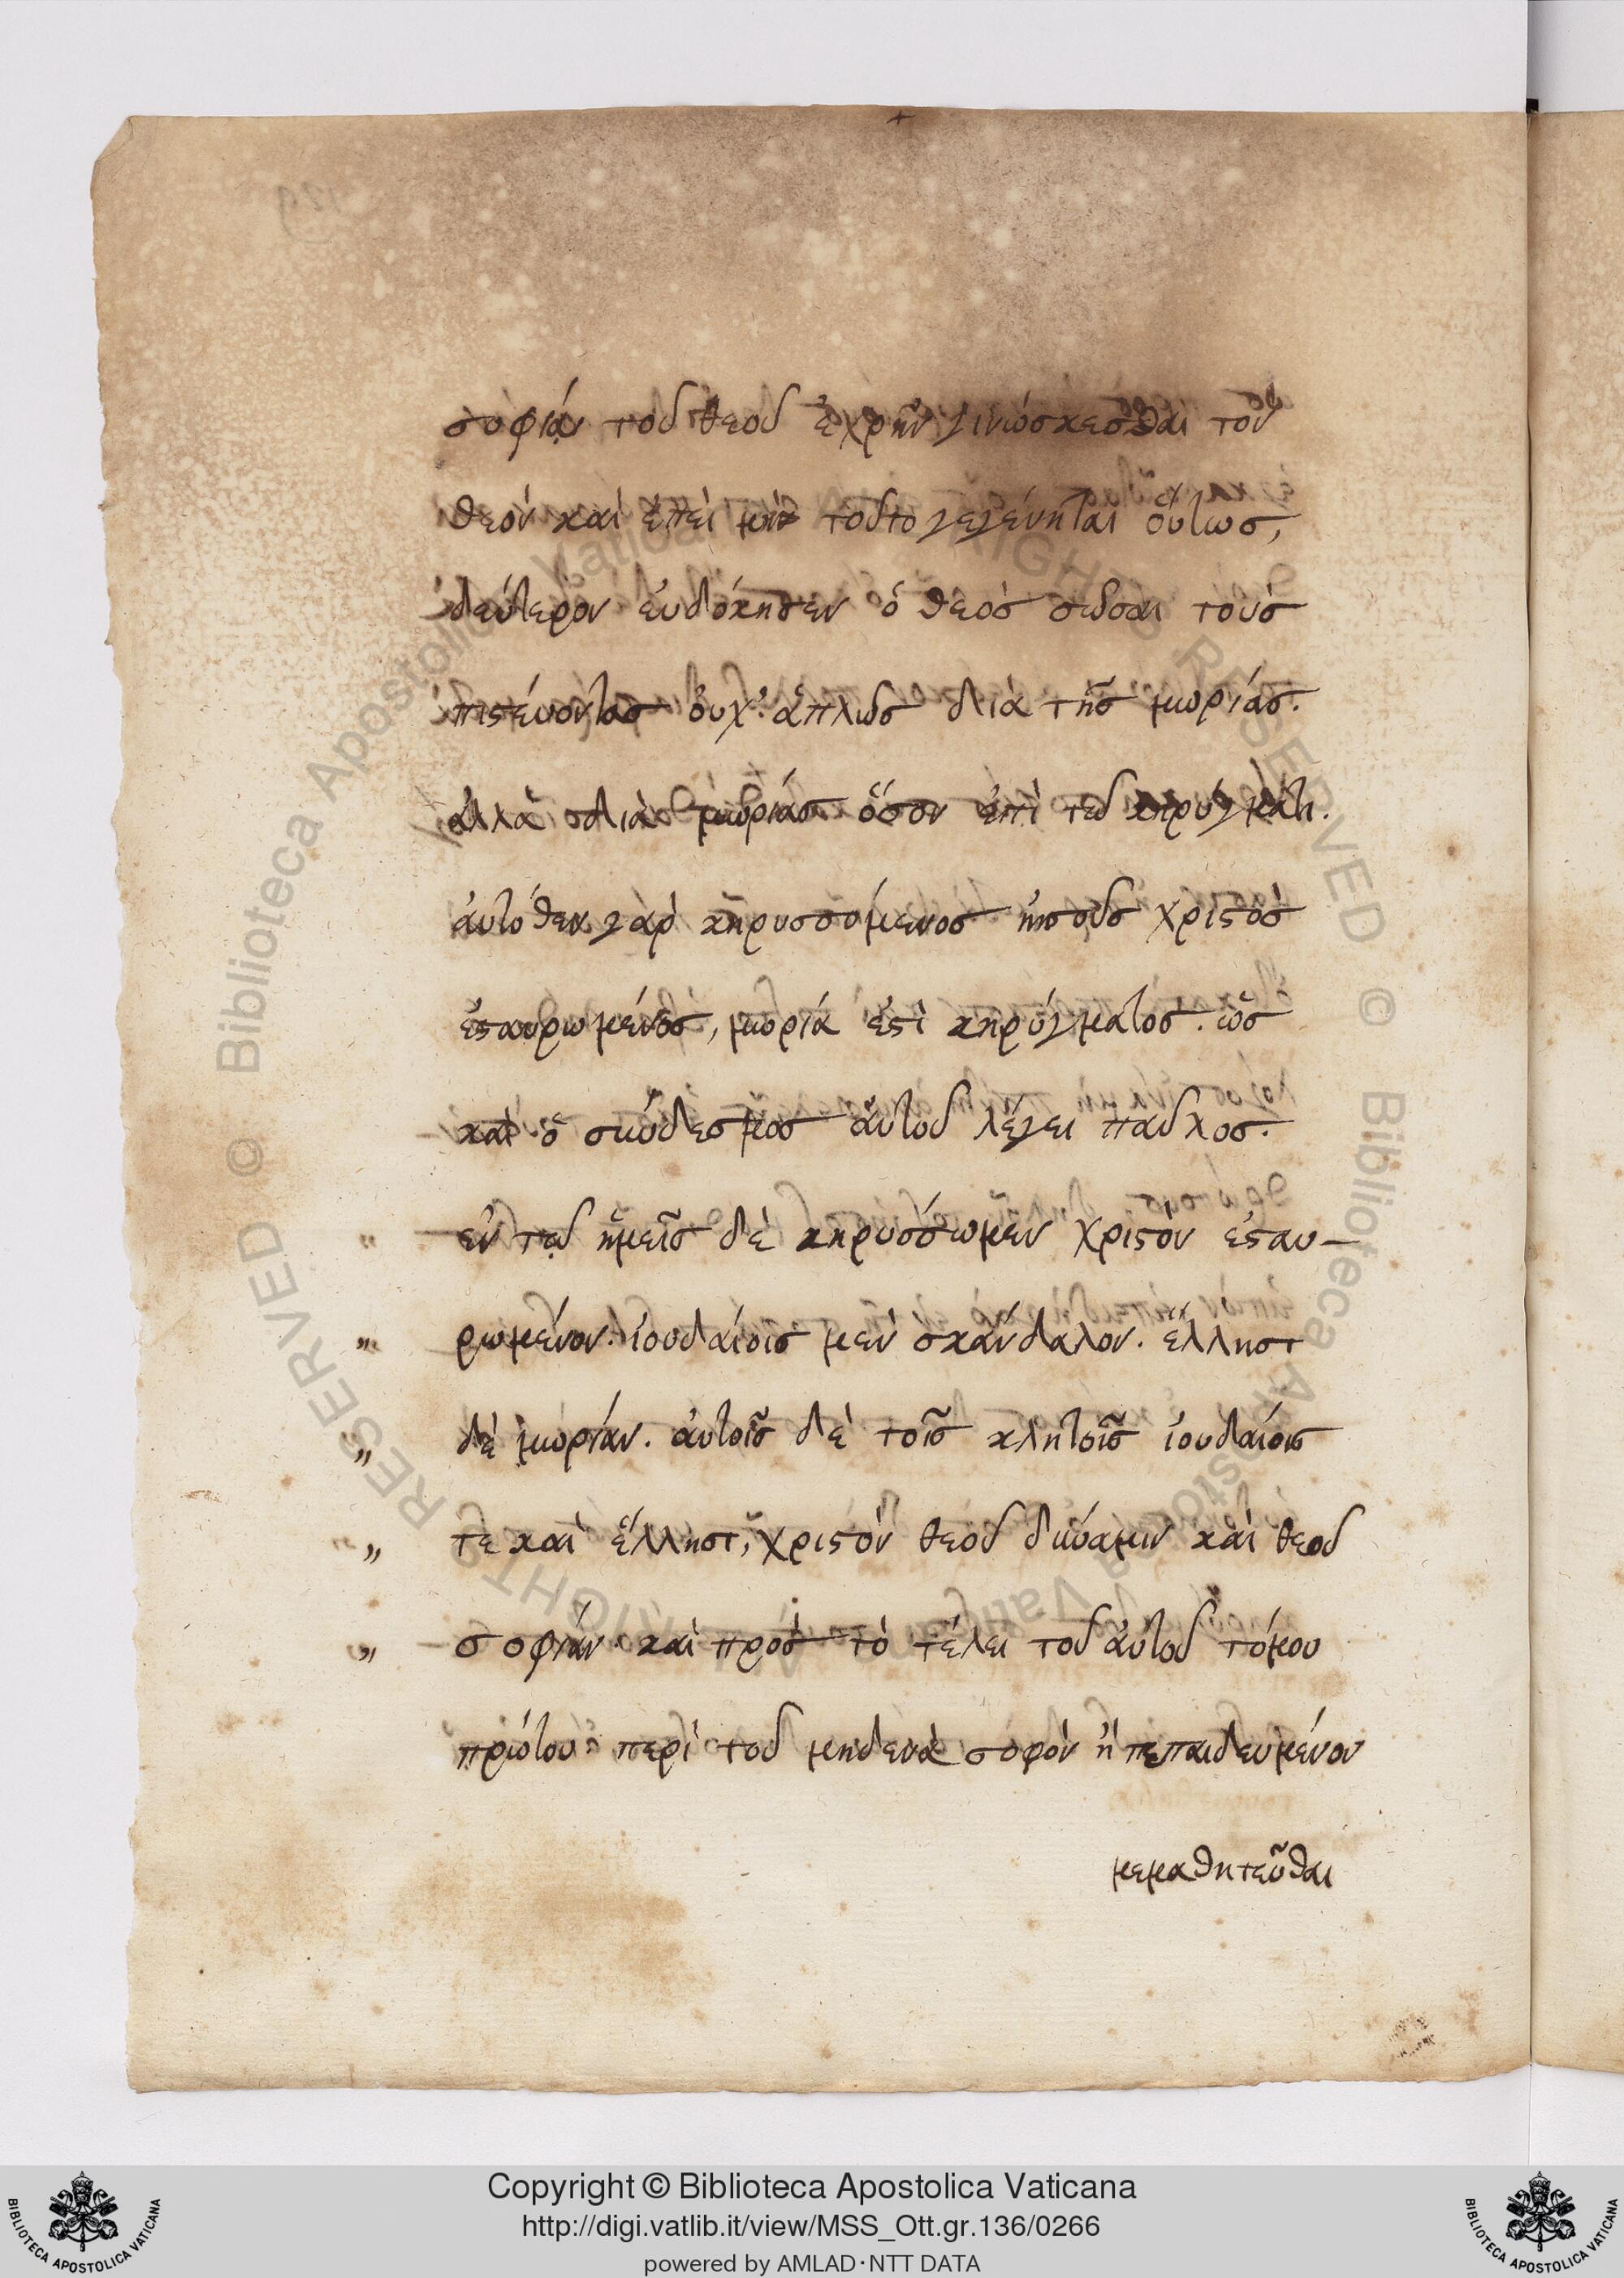 σοφίαν τοῦ θεοῦ ἐχρῆν γινώσκεσθαι τὸν
θεόν καὶ ἐπεὶ μὴ τοῦτο γεγένηται οὕτως,
δεύτερον εὐδόκησεν ὁ θεὸς σῶσαι τοὺς
πιστεύοντας οὐχ' ἁπλῶς διὰ τῆς μωρίας.
ἀλλὰ διὰ μωρίας ὅσον ἐπὶ τῷ κηρύγματι.
αὐτόθεν γὰρ κηρυσσόμενος ἰησοῦς χριστὸς
ἐσταυρωμένος, μωρία ἐστὶ κηρύγματος. ὡς
καὶ ὁ σύνδεσμος αὐτοῦ λέγει παῦλος.
" ἐν τῷ ἡμεῖς δὲ κηρύσσωμεν χριστὸν ἐσταυ-
" ρωμένον. ἰουδαίοις μὲν σκάνδαλον. ἕλλησι
" δὲ μωρίαν. αὐτοῖς δὲ τοῖς κλητοῖς ἰουδαίοις
" τε καὶ ἕλλησι, χριστὸν θεοῦ δύναμιν καὶ θεοῦ
" σοφίαν. καὶ πρὸς τὸ τέλει τοῦ αὐτοῦ τόμου
πρώτου περὶ τοῦ μηδενὰ σοφὸν ἢ πεπαιδευμένον
μεμαθητεῦσθαι
Copyright © Biblioteca Apostolica Vaticana
http://digi.vatlib.it/view/MSS_Ott.gr.136/0266
powered by AMLAD·NTT DATA
BIBLIOTECA APOSTOLICA VATICANA
BIBLIOTECA APOSTOLICA VATICANA